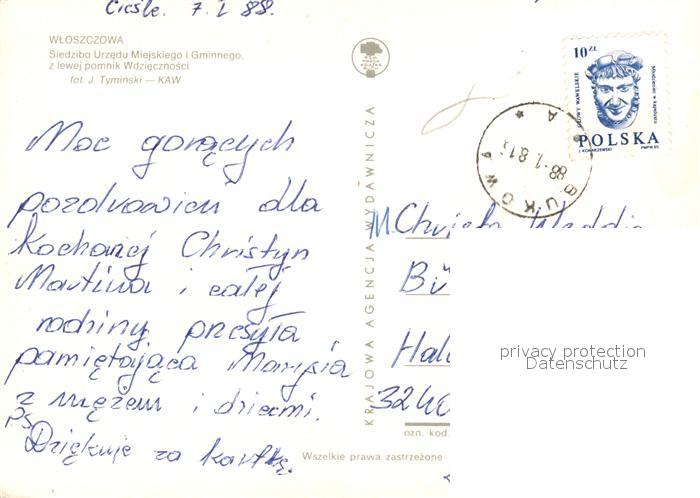 Cieśle. 7.I 88.
WŁOSZCZOWA
Siedziba Urzędu Miejskiego i Gminnego,
z lewej pomnik Wdzięczności
fot. J. Tymiński — KAW
Moc gorących
pozdrowień dla
Kochanej Christyn
Martina i całej
rodziny przesyła
pamiętająca Marysia
z mężem i dziećmi.
PS
Dziękuję za kartkę.
KRAJOWA AGENCJA WYDAWNICZA
10 ZŁ
GŁOWY WAWELSKIE
Młodzieniec w kapeluszu
POLSKA
BUKOWA
A
M.
Bü
Hal
3240
ozn. kod.
Wszelkie prawa zastrzeżone
privacy protection
Datenschutz